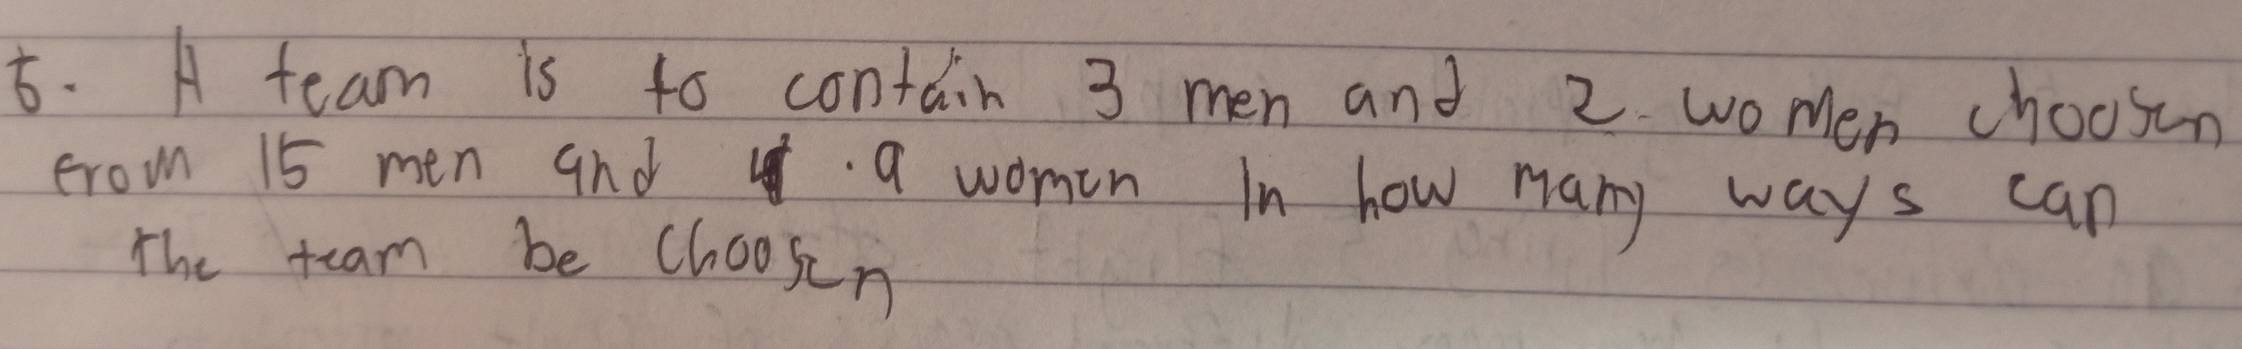 5. A team is to contain 3 men and 2 women choosen
from 15 men and 9 women In how many ways can
the team be choosen